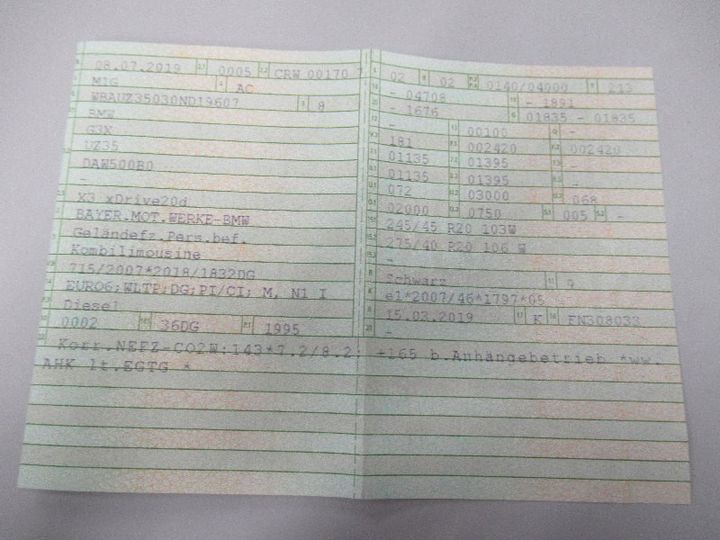 08.07.2019 0005 CRW 00170 7
M1G AC
WBAUZ35030ND19607 8
BMW
G3X
UZ35
DAW500B0
-
X3 xDrive20d
BAYER.MOT.WERKE-BMW
Geländefz.Pers.bef.
Kombilimousine
715/2007*2018/1832DG
EURO6;WLTP;DG;PI/CI; M, N1 I
Diesel
0002 36DG 1995
02 02 0140/04000 213
- 04708 - 1891
- 1676 01835 - 01835
- 00100 -
181 002420 002420
01135 01395 -
01135 01395 -
072 03000 068
02000 0750 005 -
245/45 R20 103W
275/40 R20 106 W
-
Schwarz 9
e1*2007/46*1797*05
15.03.2019 K FN308033
-
Korr.NEFZ-CO2W:143*7.2/8.2: +165 b.Anhängebetrieb *ww.
AHK lt.EGTG *